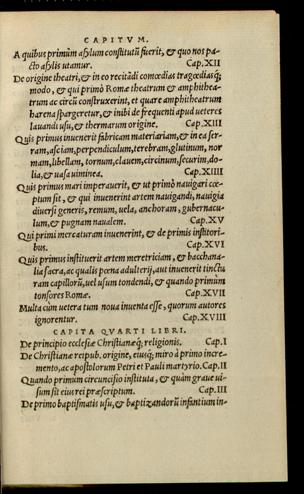 CAPITVM.
A quibus primùm asylum constitutũ fuerit, & quo nos pa-
cto asylis utamur. Cap.XII
De origine theatri, & in eo recitãdi comœdias tragœdiasq́;
modo, & qui primò Romæ theatrum & amphithea-
trum ac circũ construxerint, et quare amphitheatrum
harena spargeretur, & inibi de frequenti apud ueteres
lauandi usu, & thermarum origine. Cap.XIII
Quis primus inuenerit fabricam materiariam, & in ea ser-
ram, asciam, perpendiculum, terebram, glutinum, nor
mam, libellam, tornum, clauem, circinum, securim, do-
lia, & uasa uiminea. Cap.XIIII
Quis primus mari imperauerit, & ut primò nauigari cœ-
ptum sit, & qui inuenerint artem nauigandi, nauigia
diuersi generis, remum, uela, anchoram, gubernacu-
lum, & pugnam naualem. Cap.XV
Qui primi mercaturam inuenerint, & de primis institori-
bus. Cap.XVI
Quis primus instituerit artem meretriciam, & bacchana-
lia sacra, ac qualis pœna adulterij, aut inuenerit tinctu
ram capillorũ, uel usum tondendi, & quando primùm
tonsores Romæ. Cap.XVII
Multa cùm uetera tum noua inuenta esse, quorum autores
ignorentur. Cap.XVIII
CAPITA QVARTI LIBRI.
De principio ecclesiæ Christianæq́; religionis. Cap.I
De Christianæ reipub. origine, eiusq́; miro à primo incre-
mento, ac apostolorum Petri et Pauli martyrio. Cap.II
Quando primum circuncisio instituta, & quàm graue ui-
sum sit eius rei præscriptum. Cap.III
De primo baptismatis usu, & baptizandorũ infantium in-